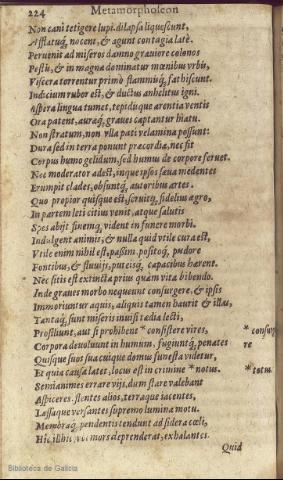 224 Metamorphoseon
Non cani tetigere lupi. dilapsa liquescunt,
Afflatuq́; nocent, & agunt contagia latè.
Peruenit ad miseros damno grauiore colonos
Pestis, & in magnæ dominatur mœnibus vrbis,
Viscera torrentur primò flammiq́; fathiscunt.
Indicium rubor est, & ductus anhelitu igni.
Aspera lingua tumet, tepidisque arentia ventis
Ora patent, auræq́; graues captantur hiatu.
Non stratum, non vlla pati velamina possunt:
Dura sed in terra ponunt præcordia, nec fit
Corpus humo gelidum, sed humus de corpore feruet.
Nec moderator adest, inque ipsos sæua medentes
Erumpit clades, obsuntq́; autoribus artes.
Quo propior quisque est, seruitq́; fidelius ægro,
In partem leti citius venit, atque salutis
Spes abijt finemq́; vident in funere morbi.
Indulgent animis, & nulla quid vtile cura est,
Vtile enim nihil est, passim. positoq́; pudore
Fontibus, & fluuijs, puteisq́; capacibus hærent.
Nec sitis est extincta prius quàm vita bibendo.
Inde graues morbo nequeunt consurgere, & ipsis
Immoriuntur aquis, aliquis tamen haurit & illas,
Tantaq́; sunt miseris inuisi tædia lecti,
Prosiliunt, aut si prohibent * consistere vires,
Corpora deuoluunt in humum, fugiuntq́; penates
Quisque suos sua cuique domus funesta videtur,
Et quia causa latet, locus est in crimine * notus.
Semianimes errare vijs, dum stare valebant
Aspiceres, flentes alios, terraque iacentes,
Lassaque versantes supremo lumina motu.
Membraq́; pendentis tendunt ad sidera cœli,
Hic, illhic, vbi mors deprenderat, exhalantes.
Quid
* consur
re
* totus
Biblioteca de Galicia